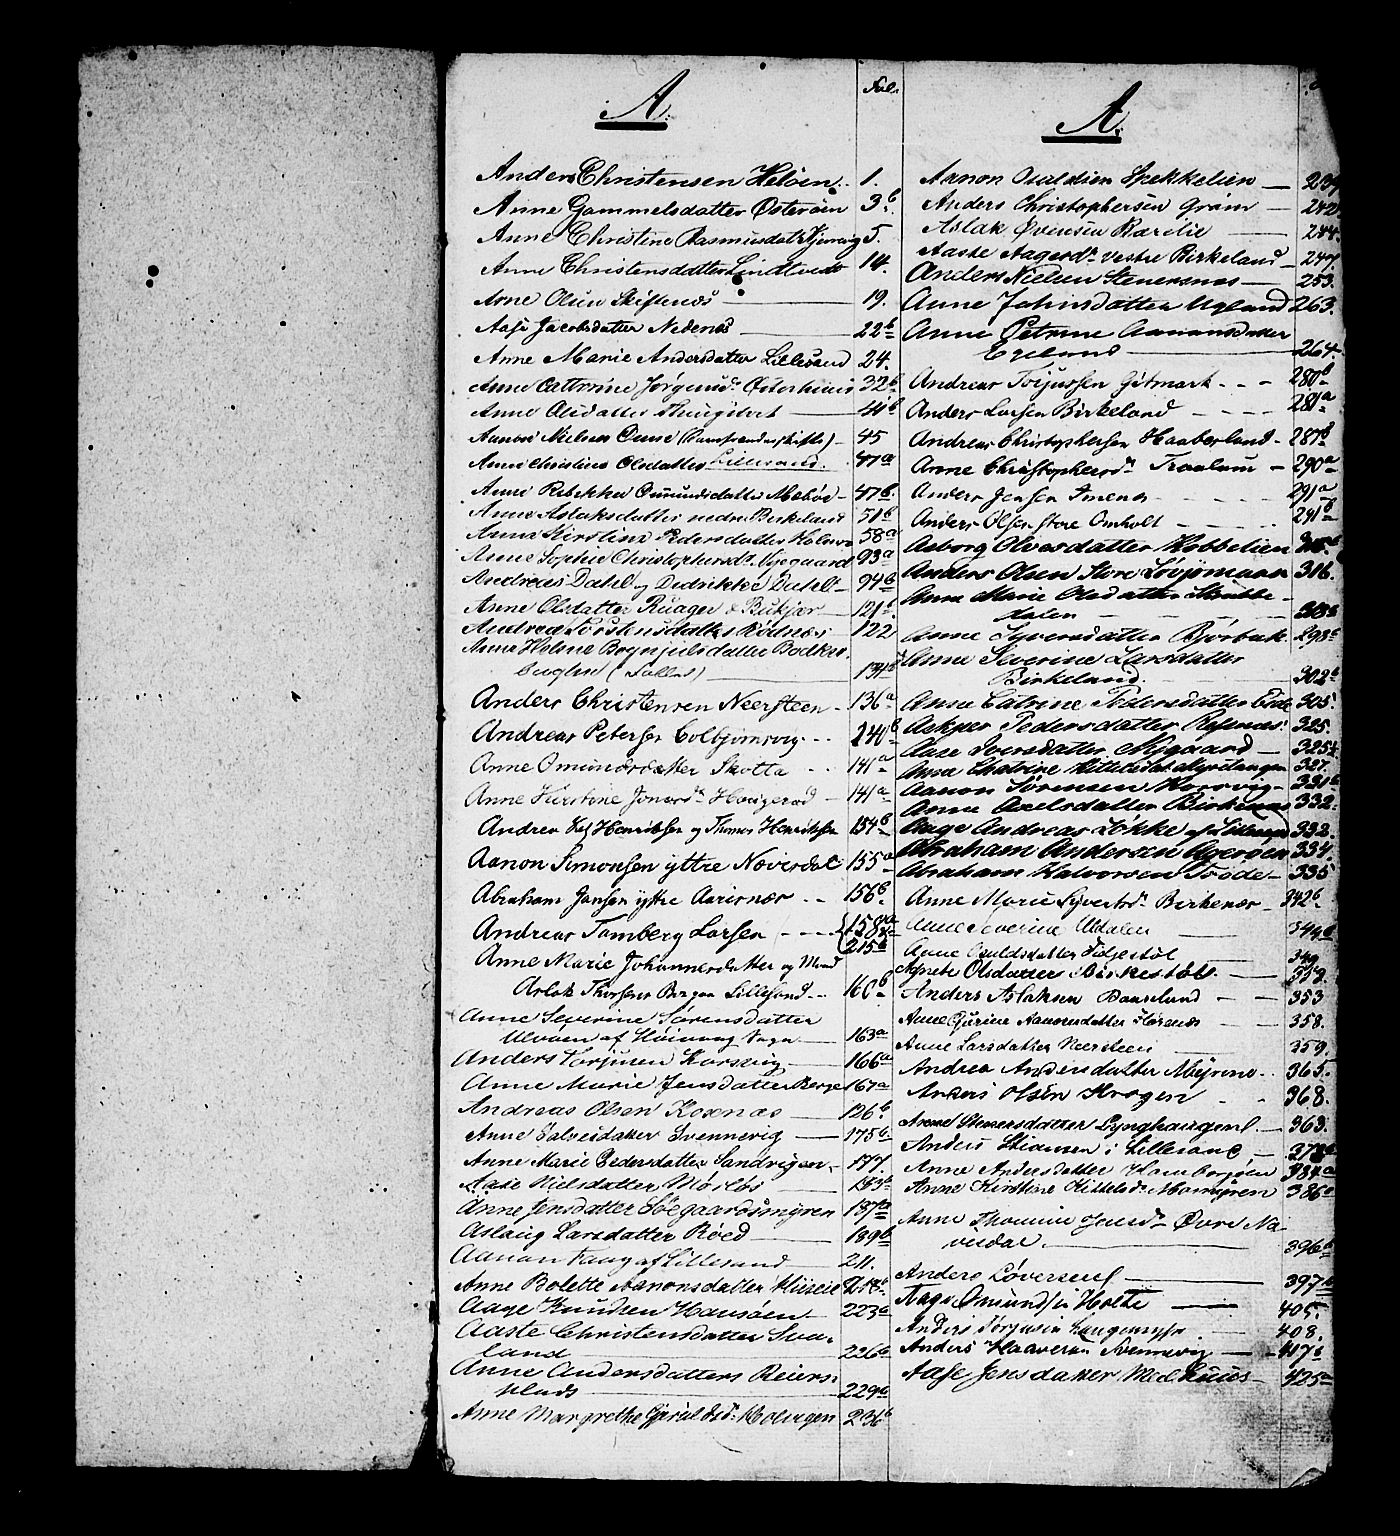 A.
Fol.
Anders Christensen Helden 1.
Anne Gammelsdatter Østerøen 3b
Anne Christine Rasmusdatr Kjervig 5.
Anne Christensdatter Lindtvedt 14.
Arne Olsen Skiftenæs 19.
Aase Jacobsdatter Nedenæs 22b
Anne Marie Andersdatter Lillesand 24.
Anne Cathrine Jørgensdr Østerhuus 32b
Anne Olsdatter 41b
Aanon Nielsen 45
Anne Christine Olsdatter Lillesand. 47a
Anne Rebekka Osmundsdatter Mæbøe 47b.
Anne Aslaksdatter nedre Birkeland 51b
Anne Kirstine Pedersdatter 58a
Anne Sophie Christophersdr Nygaard 93a
Andreas Dahl og Didrikke Dahl 94b
Anne Olsdatter Ruager 121b
Andrea Torstensdatter Rødnæs 122
Anne Helene
(Lolland) 131b
Anders Christensen Neersteen 136a
Andreas Petersen Colbjørnsvig 140b
Anne Omundsdatter Skotta 141a
Anne Kirstine Jonasdr 141a
Andrea Henriksen og Thomas Henriksen 154b
Aanon Simonsen yttre Næverdal 155a
Abraham Jansen yttre Aarisnæs 156b
Andreas Tamberg Larsen 158a
215b
Anne Marie Johannesdatter og Mand
Aslak Thorsens Bergan Lillesand 160b
Anne Severine Sørensdatter
Ulvøen af Høivaag Sogn 163a
Anders Torjusen Korsvig 166a
Anne Marie Jensdatter Berge 167a
Andreas Olsen Kosenæs 126b
Anne Salvesdatter Svennevig 175b
Anne Marie Pedersdatter Sandvigen 177.
Aase Nielsdatter 183b
Anne Jensdatter Søegaardsmyren 187a
Aslaug Larsdatter Røed 189b
Aanon Vaag af Lillesand 211.
Anne Bolette Aanonsdatter 218b
Aage Knudsen Hansøen 223a
Aaste Christensdatter Sva-
land 226b
Anne Andersdatter Reiers-
plads 229a
Anne Margrethe Gjeruldsdr. Molugen 236b
A.
Aanon Oualdsen Spekkelien 239
Anders Christophersen Gram 242
Aslak Øvensen Rærelie 244.
Aaste Aagesdr vestre Birkeland 247
Anders Nielsen Stenersnæs 253.
Anne Johnsdatter Ugland 263.
Anne Petrine Aanonsdatter
Egeland 264.
Andreas Torjussen Gitmark 280b
Anders Larsen Birkeland 281a
Andreas Christophersen Haaberland 287b
Anne Christophersdr Traalum 290a
Anders Jensen Imenæs 291a
Anders Olsen store Omholt 291b
Asborg Olvesdatter Kobbelien
Anders Olsen store Løvjomaas 316.
Anne Marie Olsdatter Skubbe-
dalen 308b
Anne Syversdatter Bjørbæk 298b
Anne Severine Larsdatter
Birkeland 302b
Anne Catrine Pedersdatter Eide 305.
Askjer Pedersdatter 325.
Aase Iversdatter Nygaard 325b
Anne Chatrine Kittelsdat Myrstangen 327.
Aanon Sørensen Korsvig 331b
Anne Axelsdatter Birkenæs 332.
Aage Andreas Løkke af Lillesand 332.
Abraham Andersen Ageröen 334.
Abraham Halvorsen Trøde 335
Anne Marie Syvertsdr Birkenæs 342b
Anne Severine Uldalen 344b
Anne Osuldsdatter Fidjestøl 349
Agnete Olsdatter Birkestøl 353.
Anders Aslaksen Baaseland 353
Anne Gurine Aanonsdatter 358.
Anne Larsdatter Neersteen 359.
Andrea Andersdatter Møjrene 365.
Anders Olsén Kragen 368.
Anne Stenersdatter Lynghaugen 363.
Anders Stiansen i Lillesand 378a
Anne Andersdatter 384a
Anne Kirstine Kittelsdr Momyren 386a
Anne Thomine Jensdr Øvre Næ-
visdal 396b
Anders Løversen 397b
Aage Omundsen Holte 405.
Anders Torjusen 408.
Anders Haaversen Svennevig 417b
Aase Jensdatter 425a